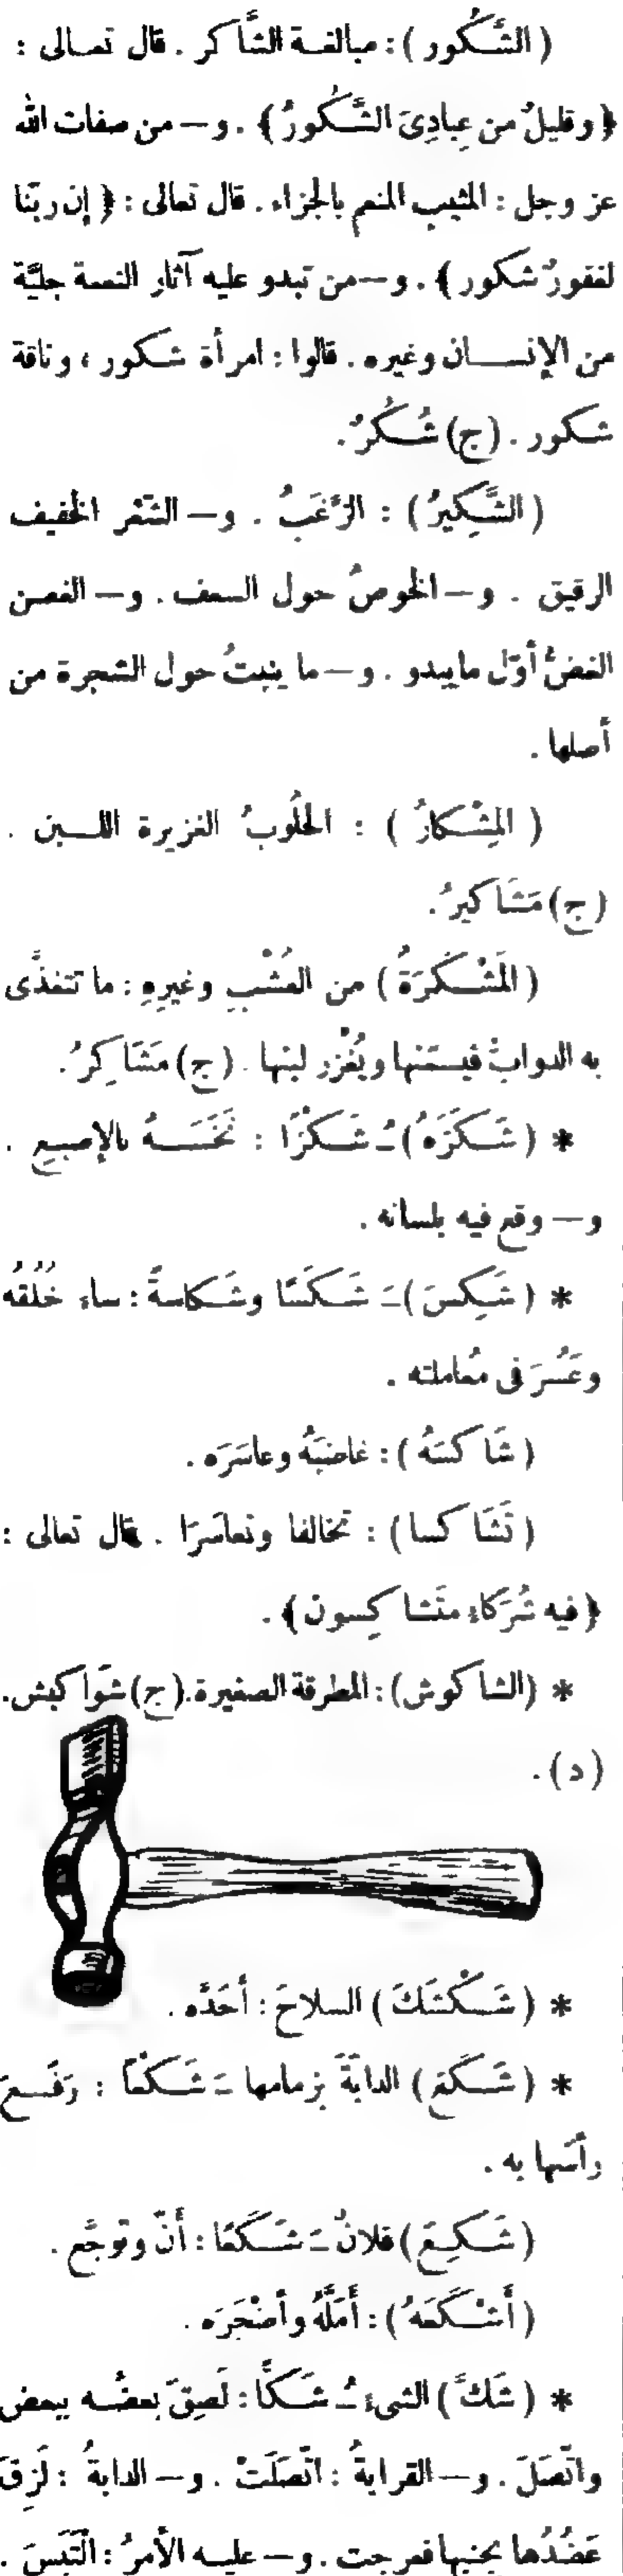 ( الشَّكُور ) : مبالغة الشَّاكر . قال تعالى :
﴿ وقليلٌ من عِبادِىَ الشَّكُورُ ﴾ . و – من صفات الله
عز وجل : المثيب المنعم بالجزاء . قال تعالى : ﴿ إن ربّنا
لغفورٌ شكور ﴾ . و – من تبدو عليه آثار النعمة جليَّة
من الإنسان وغيره . قالوا : امرأة شكور ، وناقة
شكور . (ج) شُكُرٌ .
( الشَّكِيرُ ) : الزَّغَبُ . و – الشَّعْر الخفيف
الرقيق . و – الخوصُ حول السعف . و – الغصن
الغضُّ أوّل ما يبدو . و – ما ينبتُ حول الشجرة من
أصلها .
( المِشْكارُ ) : الحَلُوبُ الغزيرة اللبن .
(ج) مَشَاكيرُ .
( المَشْكَرَةُ ) من العُشْبِ وغيرِهِ : ما تتغذَّى
به الدوابّ فيسمّنها ويُغْزر لبنها . (ج) مَشَاكِرُ .
* ( شَكَزَهُ ) ـُ شَكْزًا : نَخَسَهُ بالإصبع .
و – وقع فيه بلسانه .
* ( شَكِسَ ) ـَ شَكَسًا وشَكاسةً : ساء خُلُقُه
وعَسُرَ فى مُعاملته .
( شَاكَسَهُ ) : غاضبَهُ وعاسَرَه .
( تَشَاكسا ) : تخالفا وتعاسَرَا . قال تعالى :
﴿ فيه شُرَكَاءُ متَشاكِسون ﴾ .
* ( الشاكوش ) : المطرقة الصغيرة . (ج) شَوَاكيش .
( د ) .
* ( شَكْشَكَ ) السلاحَ : أحَدَّه .
* ( شَكَعَ ) الدابّةَ بزمامها ـَ شَكْعًا : رَفَعَ
رأسَها به .
( شَكِعَ ) فلانٌ ـَ شَكَعًا : أنّ وتوجَّع .
( أَشْكَعَهُ ) : أَمَلَّهُ وأضْجَرَه .
* ( شَكَّ ) الشىءُ ـُ شَكًّا : لَصِقَ بعضُه ببعض
واتّصَلَ . و – القرابةُ : اتّصَلَتْ . و – الدابةُ : لَزِقَ
عَضُدُها بجنبها فعرجت . و – عليه الأمرُ : الْتَبَسَ .